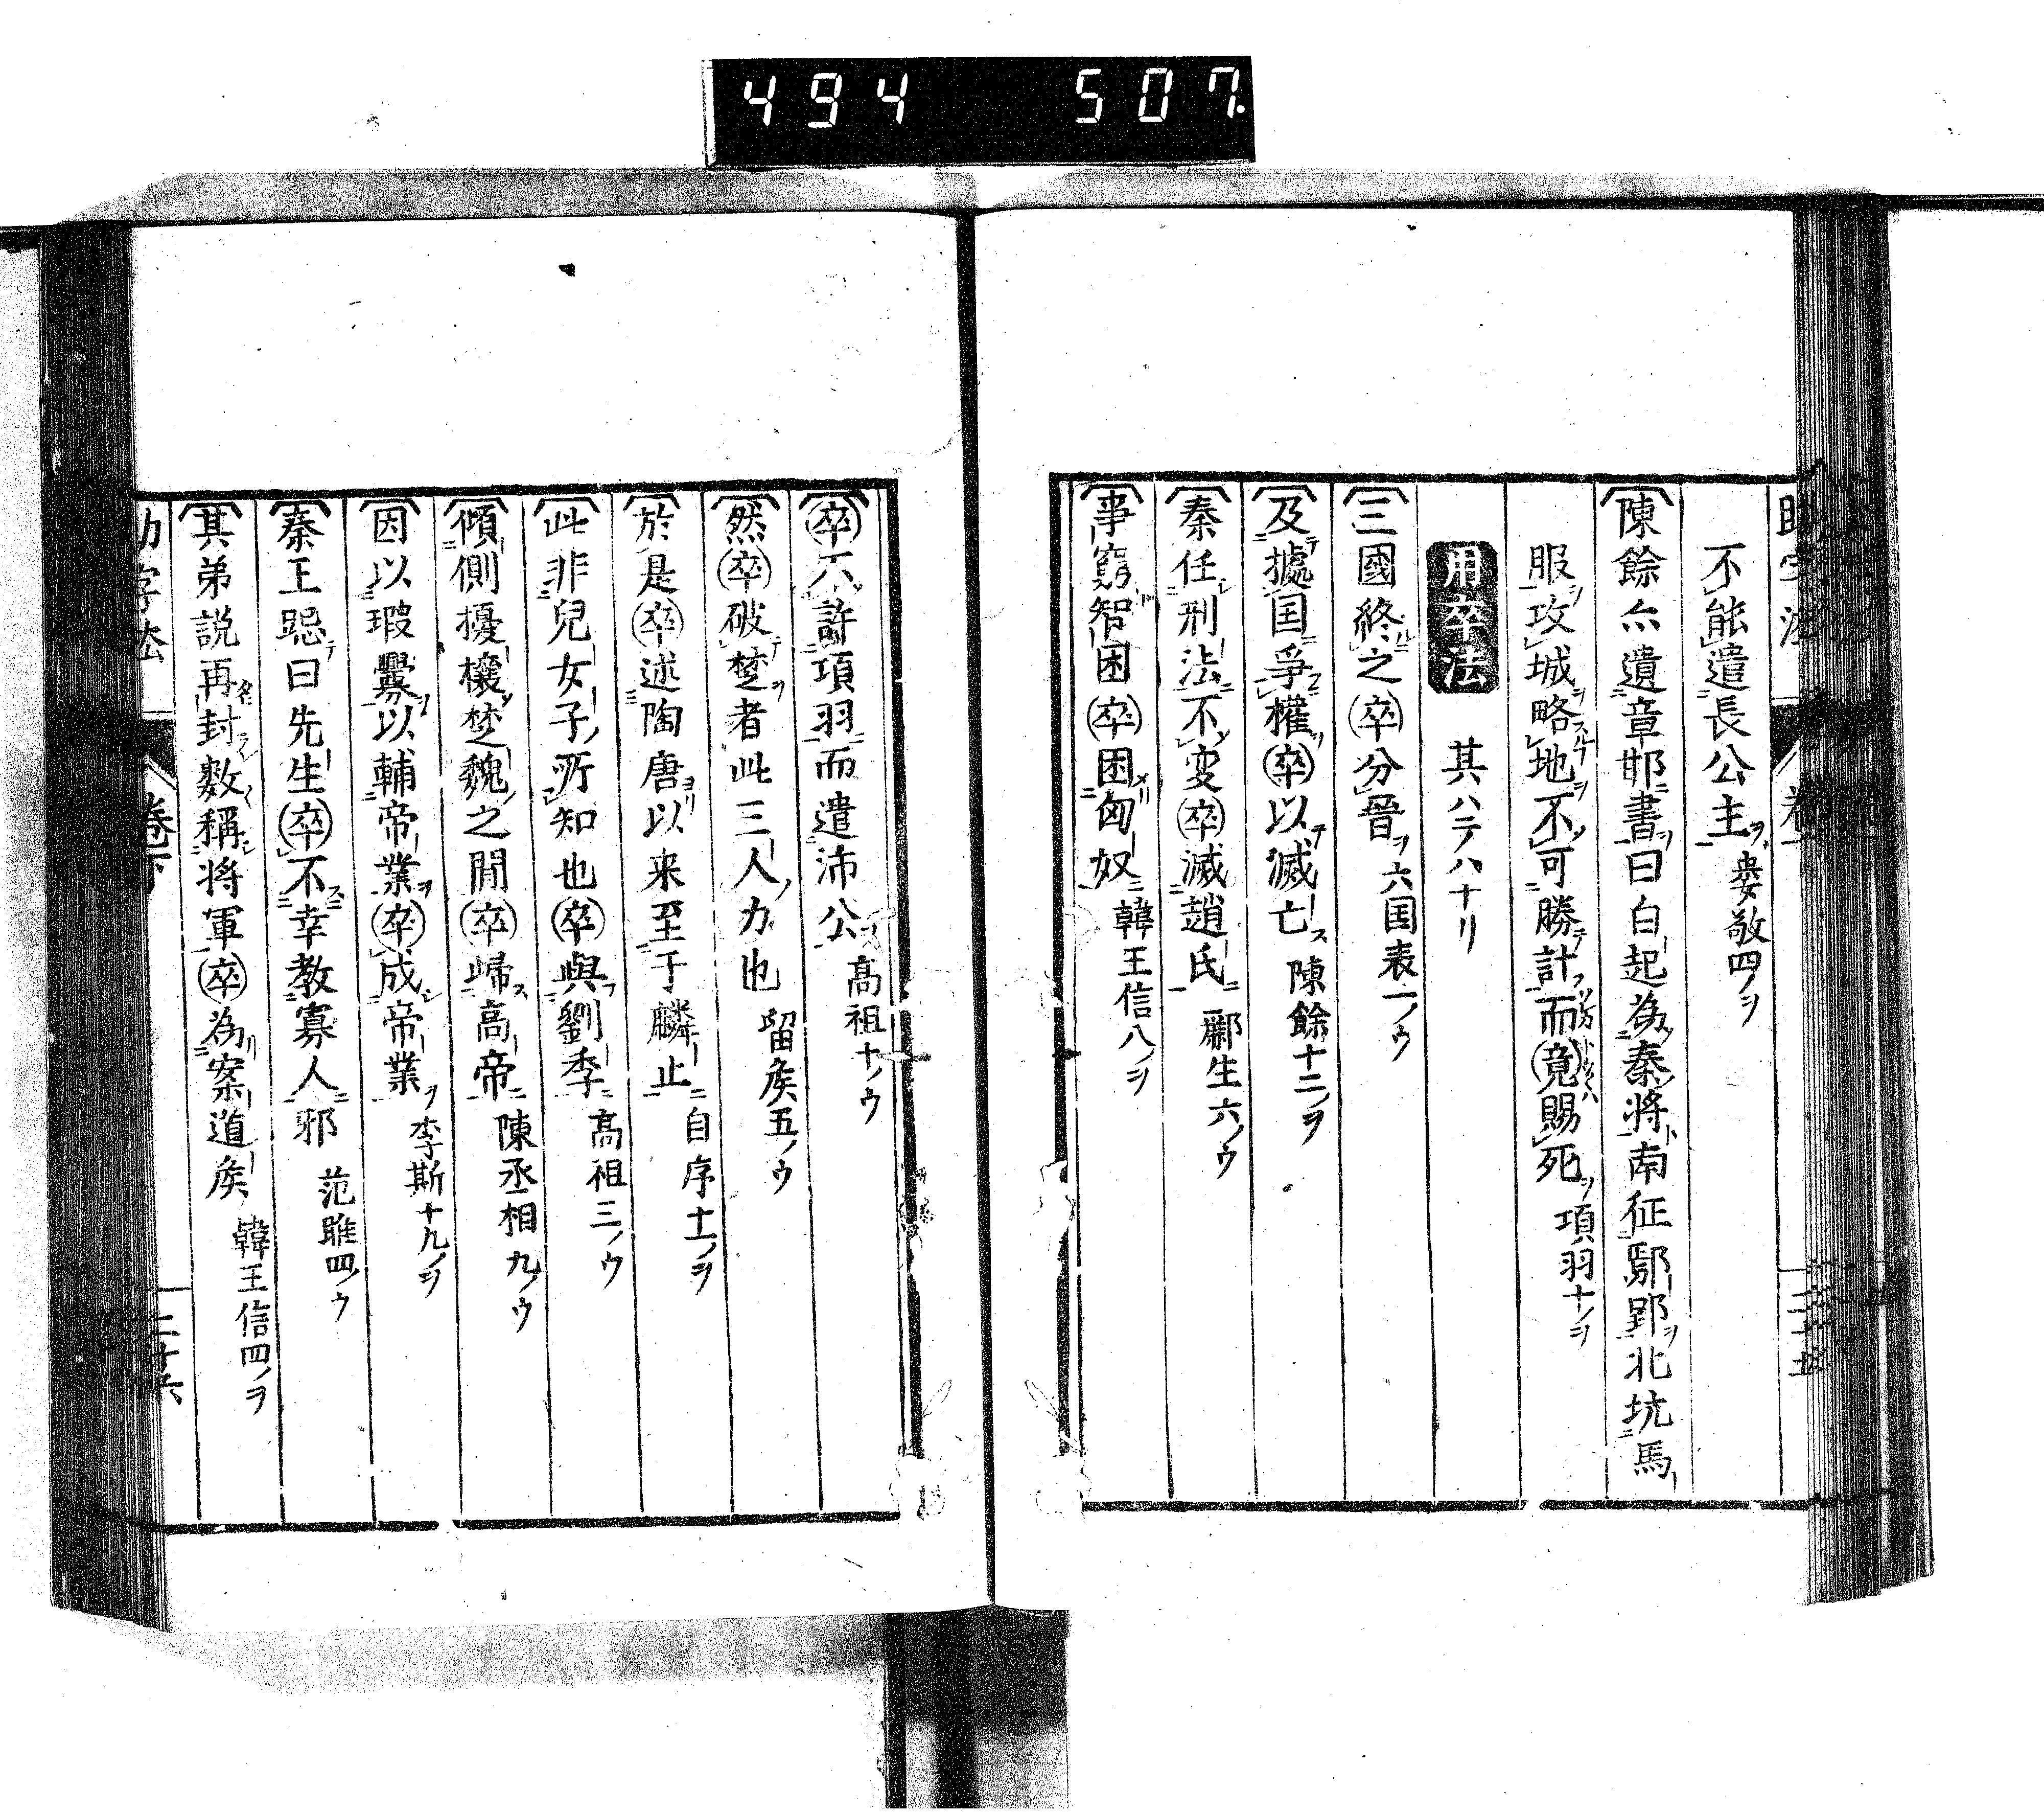 494 507
不能遣長公主 婁敬四ノヲ
陳餘亦遺章邯書曰白起為秦将南征鄢郢北坑馬
服攻城略地不可勝計而竟賜死 項羽十ノヲ
用卒法 其ハテハナリ
三國終之卒分晉 六国表一ノウ
及據国爭權卒以滅亡 陳餘十二ノヲ
秦任刑法不変卒滅趙氏 酈生六ノウ
事窮智困卒困匈奴 韓王信八ノヲ
卒不許項羽而遣沛公 高祖十ノウ
然卒破楚者此三人力也 留矦五ノウ
於是卒述陶唐以来至于麟止 自序十一ノヲ
此非兒女子所知也卒與劉季 高祖三ノウ
傾側擾攘楚魏之間卒歸高帝 陳丞相九ノウ
因以瑕釁以輔帝業卒成帝業 李斯十九ノヲ
秦王跽曰先生卒不幸教寡人邪 范雎四ノウ
其弟説再封数稱将軍卒為案道矦 韓王信四ノヲ
助字法 卷下 二十六